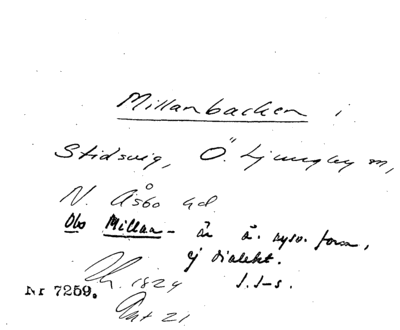 Millanbacken i
Stidsvig, Ö. Ljungby sn,
N. Åsbo hd
Obs Millan- är nysv. form,
ej dialekt.
J. J-s.
1824
Nr 7259.
21